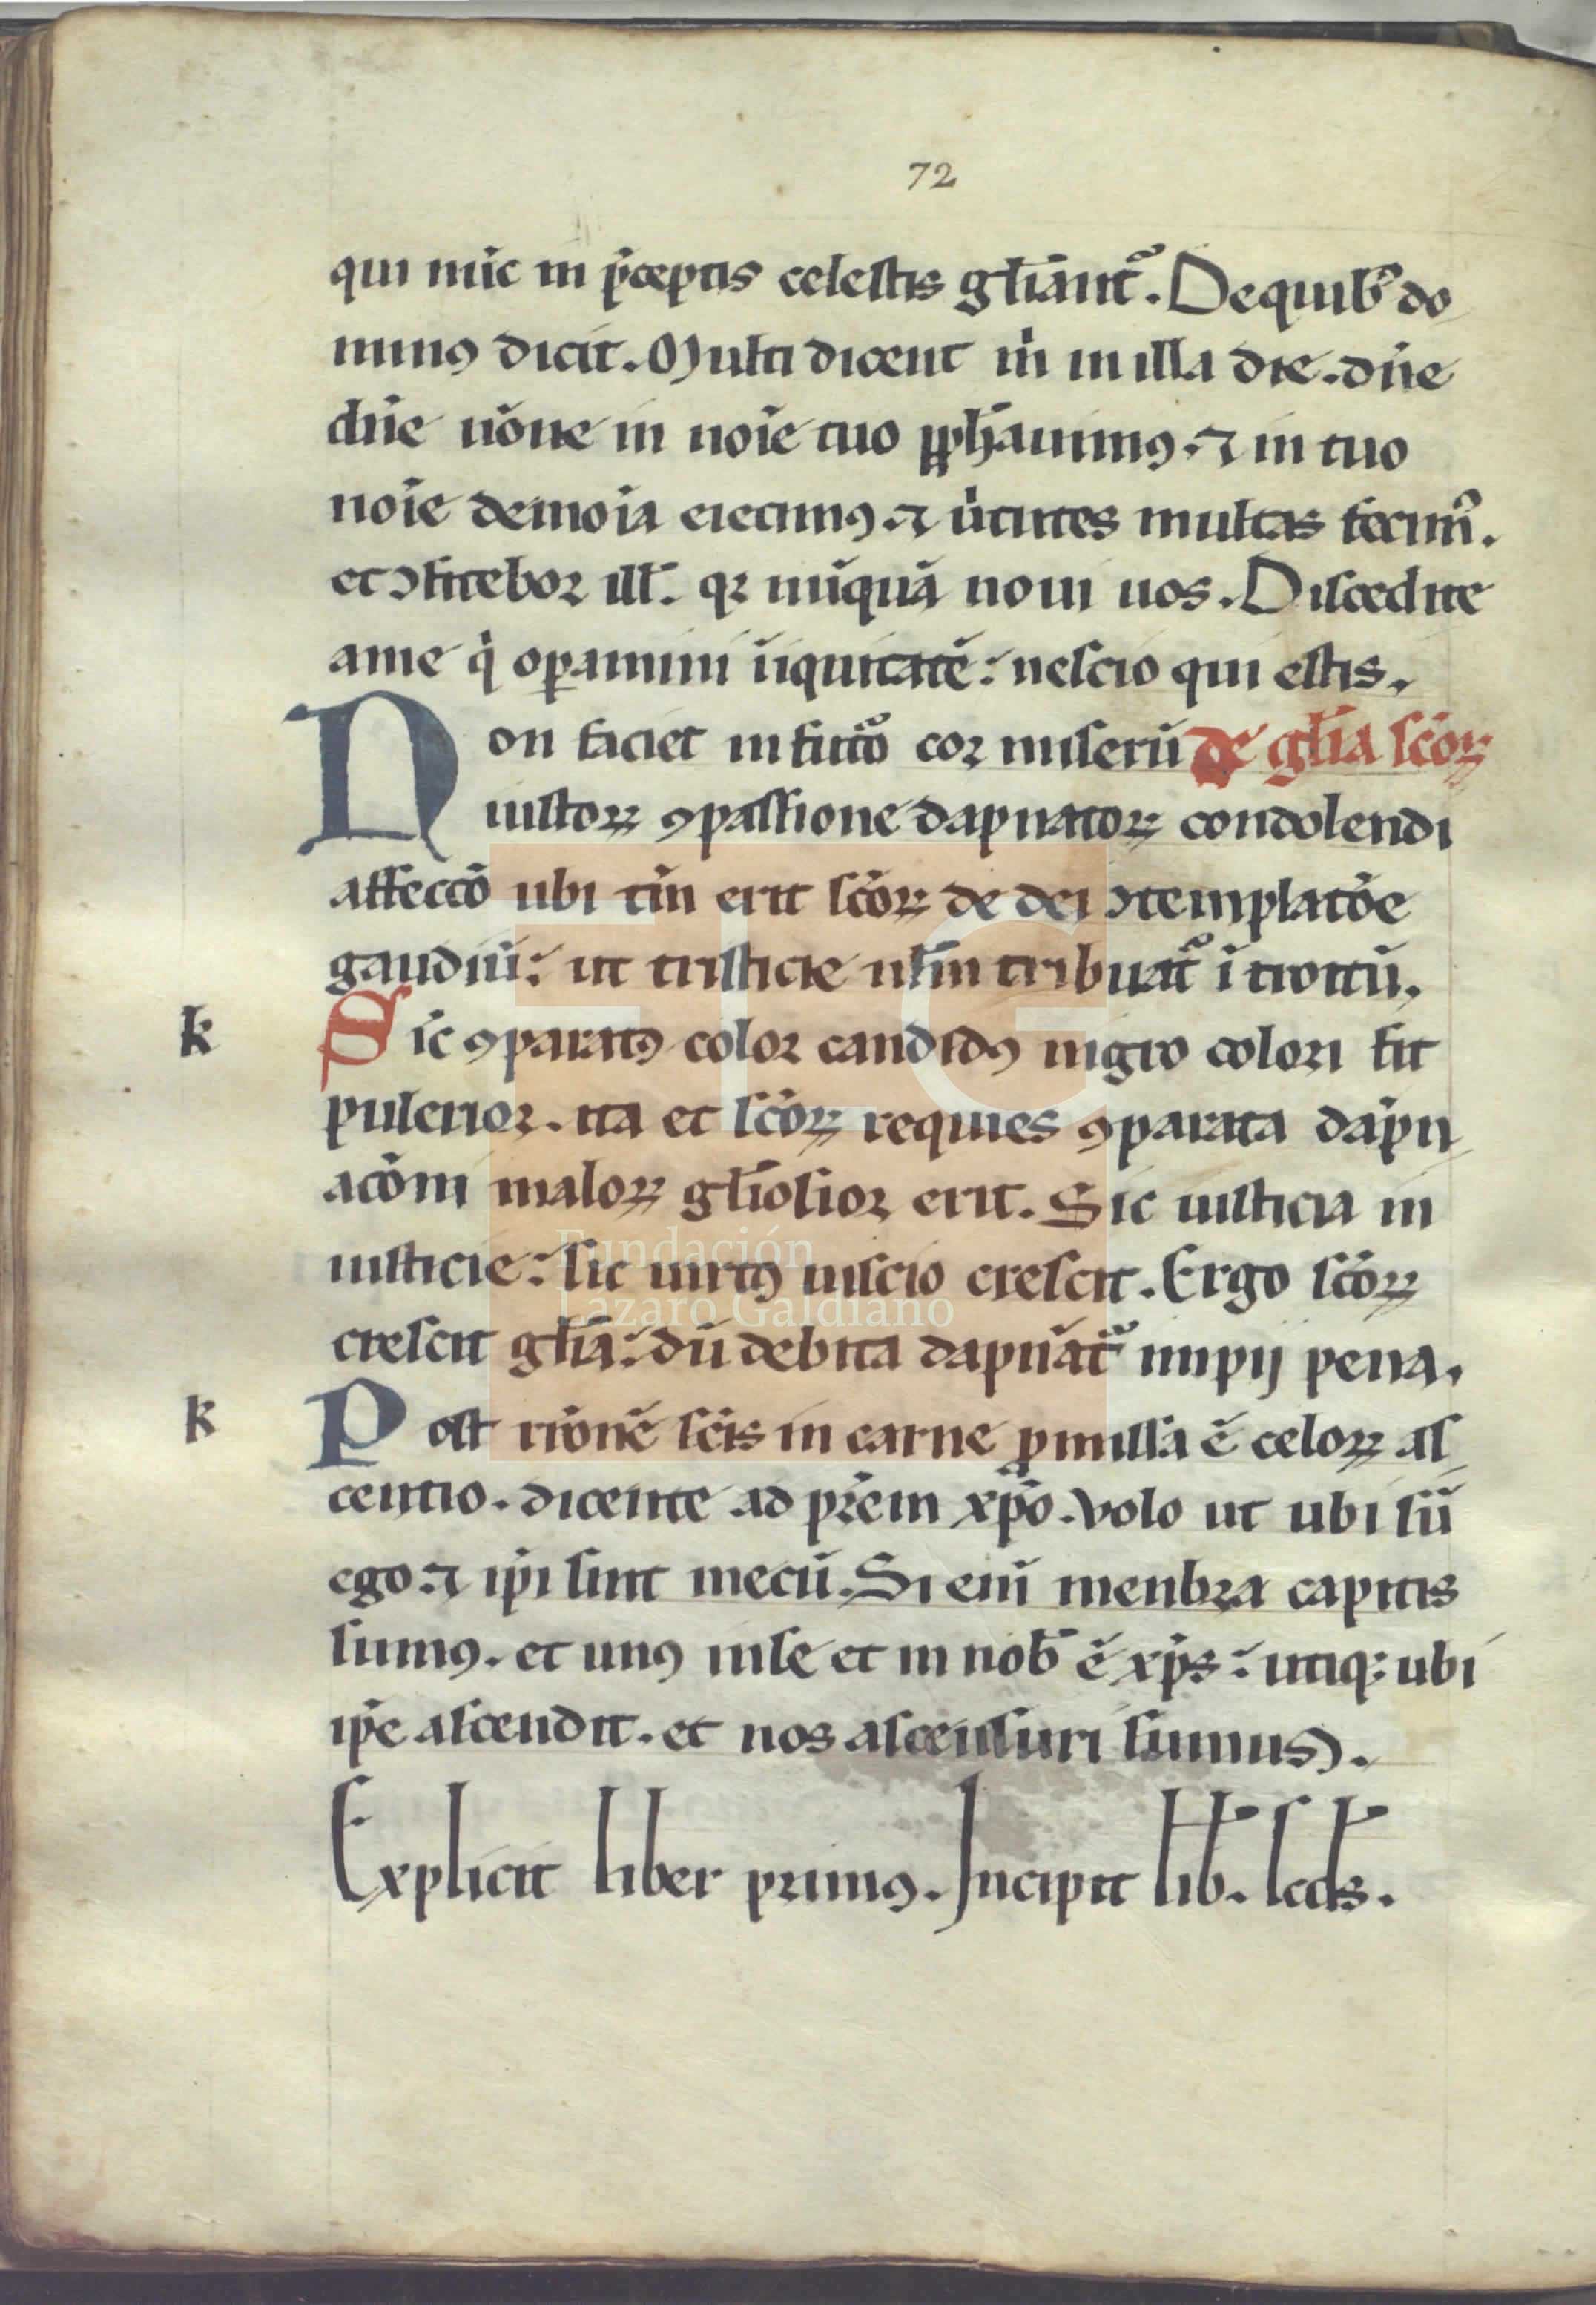 72
qui nūc in p̄ceptis celestis gl̄iant᷑. De quib᷒ do
minꝯ dicit. Multi dicent m̄ in illa die. dn̄e
dn̄e nōne in noīe tuo ꝓph̄auimꝯ. ⁊ in tuo
noīe demoīa eiecimꝯ. ⁊ u̓tutes multas fecim᷒.
et ↄfitebor ill̄. qꝛ nūquā noui uos. Discedite
a me q̇ oꝑamini iniquitatē: nescio qui estis.
Non faciet in futᷣo cor miserū de gl̄ia sc̄oꝝ
iustoꝝ ꝯpassione dapnatoꝝ condolendi
affeccō ubi tm̄ erit sc̄oꝝ de dei ↄtemplatōe
gaudiū: ut tristicie nl̄m tribuat᷑ īt̓oitū.
k
Sīc ꝯparatꝯ color candidꝯ nigro colori fit
pulcrior. ita et sc̄oꝝ requies ꝯparata dāpn
acōni maloꝝ gl̄iosior erit. Sic iusticia in
iusticie: sic uirtꝯ uiscio crescit. Ergo sc̄oꝝ
crescit gl̄ia: dū debita dapnāt᷑ impij pena.
k
Post r̄rōnē sc̄is in carne ꝓmissa ē celoꝝ as
centio. dicente ad pr̄em xp̄o. volo ut ubi sū
ego. ⁊ ip̄i sint mecū. Si enī menbra capitis
sumꝯ. et unꝯ in se et in nob̄ ē xp̄s: utiqꝫ ubi
ip̄e ascendit. et nos ascensuri sumus.
Explicit liber primꝯ. Incipit lib̄. sc̄ds.
FLG
Fundación
Lázaro Galdiano